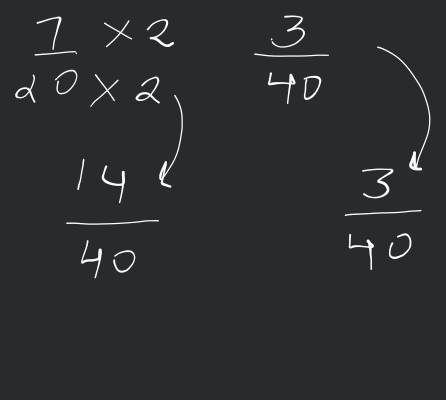 7 × 2
20 × 2
3
40
14
40
3
40